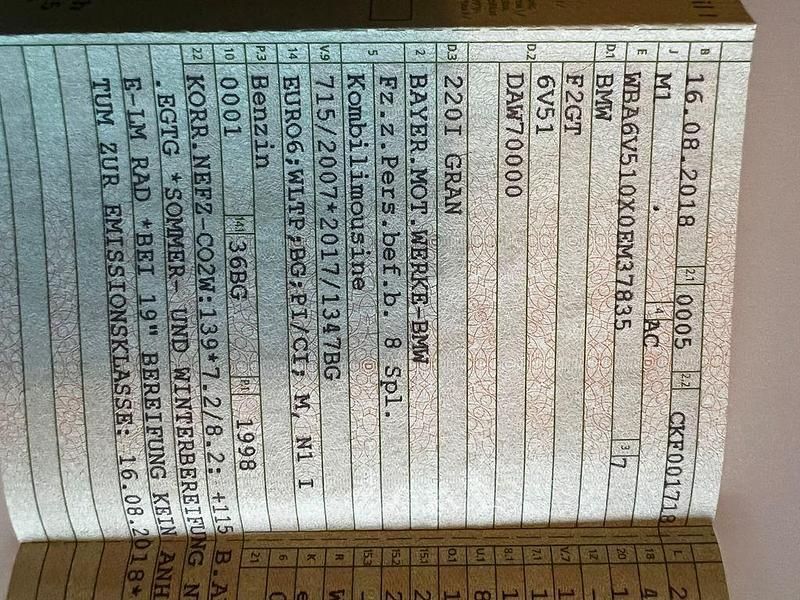 B 16.08.2018 2.1 0005 2.2 CKF001718
J M1 4 AC
E WBA6V510X0EM37835 3 7
D.1 BMW
D.2 F2GT
6V51
DAW70000
D.3 220I GRAN
2 BAYER.MOT.WERKE-BMW
5 Fz.z.Pers.bef.b. 8 Spl.
Kombilimousine
V.9 715/2007*2017/1347BG
14 EURO6;WLTP;BG;PI/CI; M, N1 I
P.3 Benzin
10 0001 14.1 36BG P.1 1998
22 KORR.NEFZ-CO2W:139*7.2/8.2: +115 B.A
.EGTG *SOMMER- UND WINTERBEREIFUNG N
E-LM RAD *BEI 19" BEREIFUNG KEIN ANH
TUM ZUR EMISSIONSKLASSE: 16.08.2018*
L 2
18 4
20 1
12 -
V.7 1
7.1 1
8.1 1
U.1 8
O.1 1
15.1 2
15.2 2
15.3 -
R W
K e
6 0
21